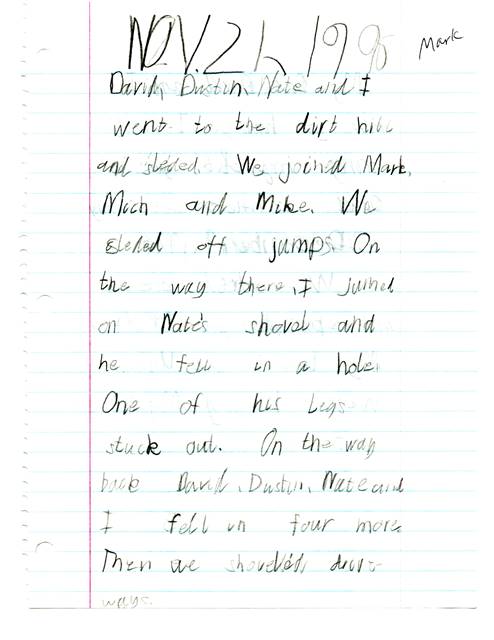 NOV. 21, 1990
Mark
David, Dustin, Nate and I
went to the dirt hill
and sleded. We joined Mark,
Mich and Mike. We
sleded off jumps. On
the way there, I jumed
on Nate's shovel and
he fell in a hole.
One of his Legs
stuck out. On the way
back David, Dustin, Nate and
I fell in four more
Then we shoveled drive-
ways.